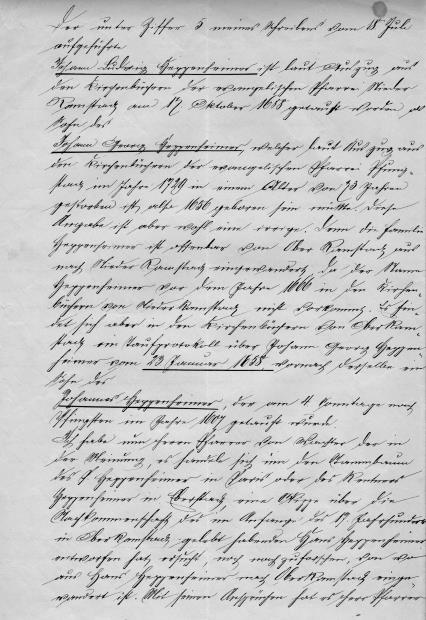 Der unter Ziffer 5 meines Schreibens vom 18 Juli
aufgeführte
Johann Ludwig Geppenheimer ist laut Auszug aus
den Kirchenbüchern der evangelischen Pfarrei Nieder
Ramstadt am 17 Oktober 1688 getauft worden als
Sohn des
Johann Georg Geppenheimer, welcher laut Auszug aus
den Kirchenbüchern der evangelischen Pfarrei Pfung-
stadt im Jahre 1729 in einem Alter von 73 Jahren
gestorben ist, also 1656 geboren sein müßte. Diese
Angabe ist aber wohl eine irrige. Denn die Familie
Geppenheimer ist offenbar von Ober Ramstadt aus
nach Nieder Ramstadt eingewandert, da der Name
Geppenheimer vor dem Jahre 1666 in den Kirchen-
büchern von Nieder Ramstadt nicht vorkommt. Es fin-
det sich aber in den Kirchenbüchern von Ober Ram-
stadt ein Taufprotokoll über Johann Georg Geppen-
heimer vom 23 Januar 1658 wonach derselbe ein
Sohn des
Johannes Geppenheimer, der am 4. Sonntage nach
Pfingsten im Jahre getauft wurde.
Ich habe nun Herrn Pfarrer von der in
der Meinung, es handle sich um den Stammbaum
des Geppenheimer in Paris oder des Rentners
Geppenheimer in Eberstadt, eine Skizze über die
Nachkommenschaft des im Anfange des 17. Jahrhunderts
in Oberramstadt gelebt habenden Hans Geppenheimer
entworfen hat, ersucht, noch nachzuforschen, von wo
aus Hans Geppenheimer nach Oberramstadt einge-
wandert ist. Mit seinen Ansprüchen hat es Herr Pfarrer